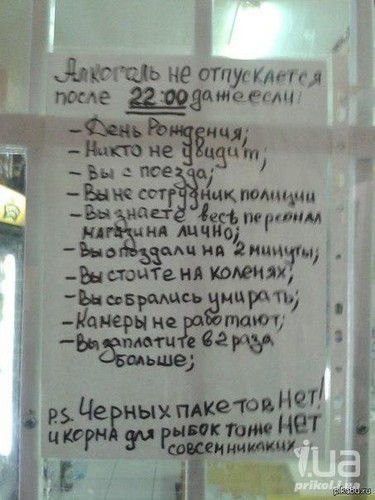 Алкоголь не отпускается
после 22:00 даже если:
- День Рождения;
- Никто не увидит;
- Вы с поезда;
- Вы не сотрудник полиции
- Вы знаете весь персонал
магазина лично;
- Вы опоздали на 2 минуты;
- Вы стоите на коленях;
- Вы собрались умирать;
- Камеры не работают;
- Вы заплатите в 2 раза
больше;
P.S. Черных пакетов НЕТ!
и корма для рыбок тоже НЕТ
совсем никаких
i.ua
prikol.i.ua
pikabu.ru